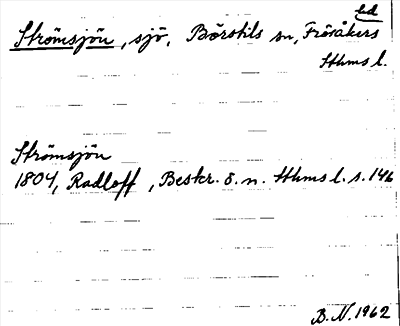 Strömsjön, sjö, Börstils sn, Frösåkers hd
Sthms l.
Strömsjön
1804, Radloff, Beskr. ö. n. Sthms l. s. 146
B.N. 1962